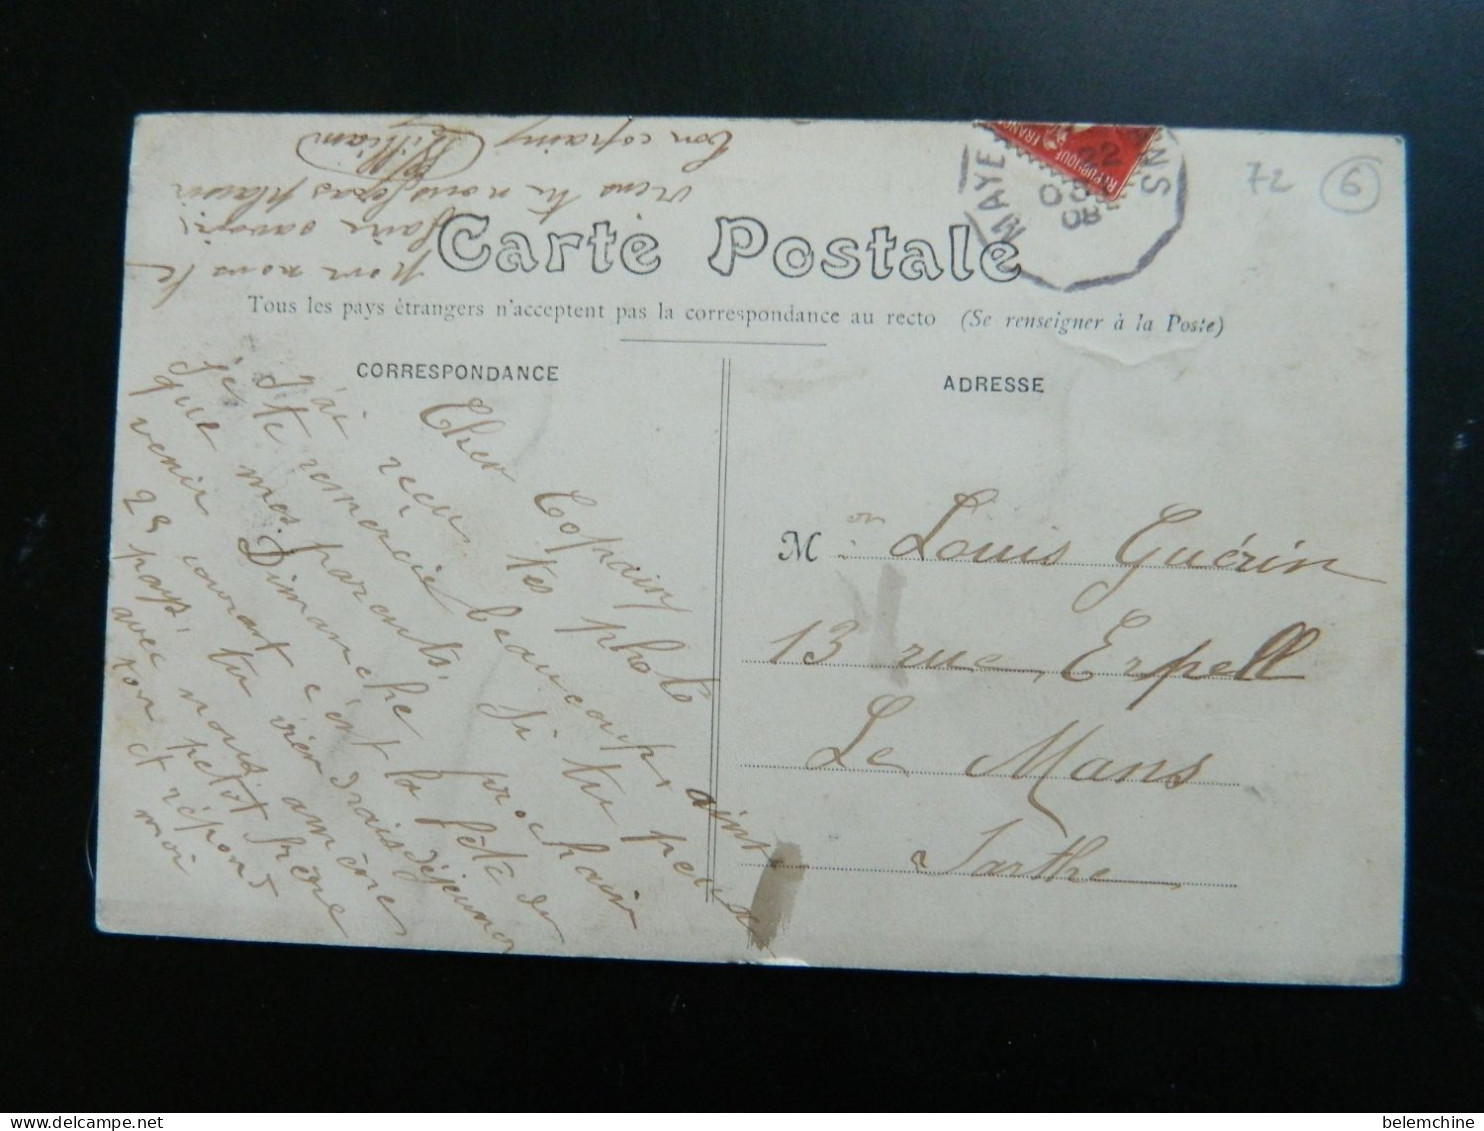 Carte Postale
Tous les pays étrangers n'acceptent pas la correspondance au recto (Se renseigner à la Poste)
CORRESPONDANCE
ADRESSE
RÉPUBLIQUE FRANÇ
MAYE
NS
22
08
72
6
Cher Copain
J'ai reçu tes photo
je te remercie beaucoup, ainsi
que mes parents, Si tu peux
venir Dimanche prochain
29 courant c'est la fête du
pays, tu viendrais déjeuner
avec nous, amène
ton petit frère
et répond
moi
pour nous le
faire savoir,
viens tu nous feras plaisir
ton copain
William
M on Louis Guérin
13 rue Erpell
Le Mans
Sarthe
belemchine